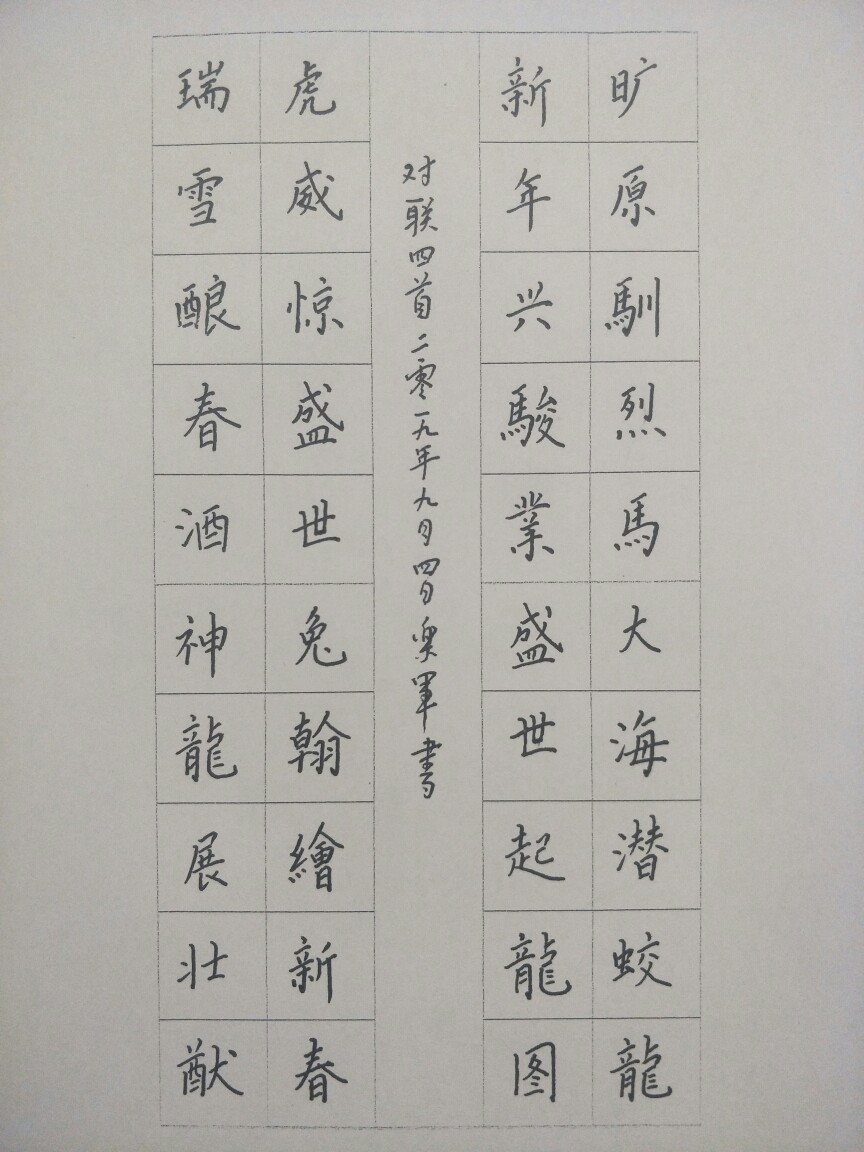 旷原馴烈馬大海潜蛟龍
新年兴駿業盛世起龍图
对联四首二零一九年九月四日樂軍書
虎威惊盛世兔翰繪新春
瑞雪酿春酒神龍展壮猷